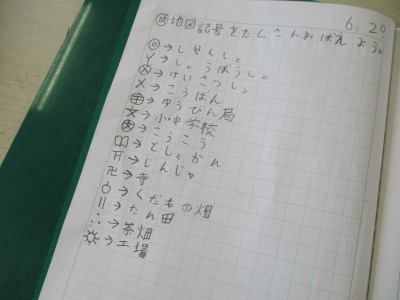 6. 20
め 地図記号をたくさんおぼえよう。
◎→しやくしょ
Y→しょうぼうしょ
Ⓧ→けいさつしょ
X→こうばん
〶→ゆうびん局
文→小中学校
㊛→こうこう
→としょかん
⛩→じんじゃ
卍→寺
→くだもの畑
||→たん田
∴→茶畑
☼→工場